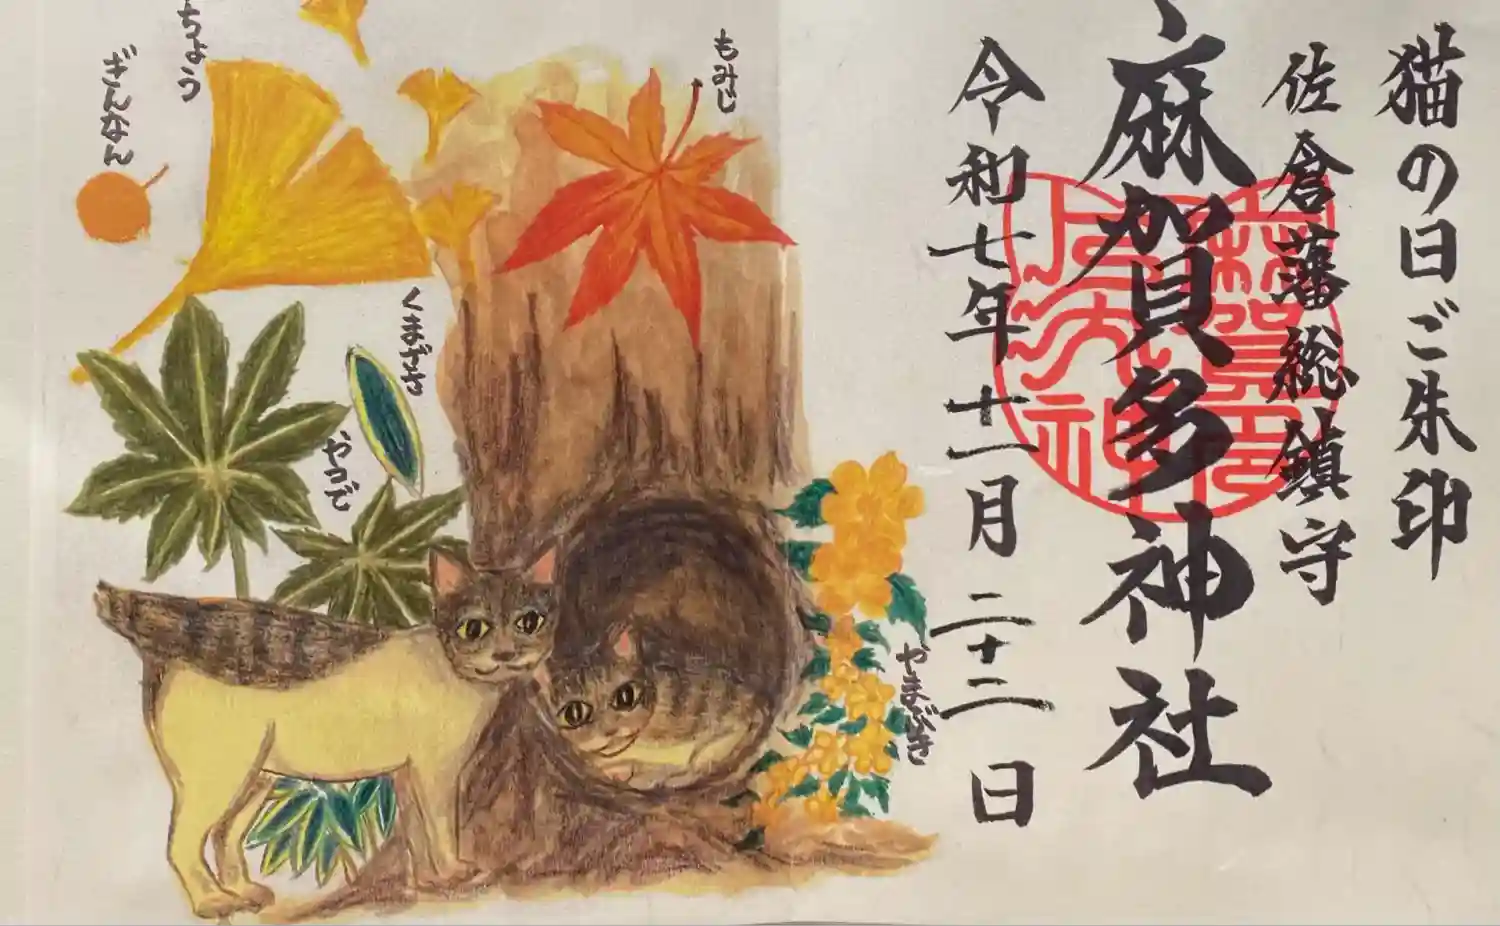 猫の日ご朱印
佐倉藩総鎮守
麻賀多神社
令和七年十一月二十二日
もみじ
やまぶき
くまざさ
やつで
ちょう
ぎんなん